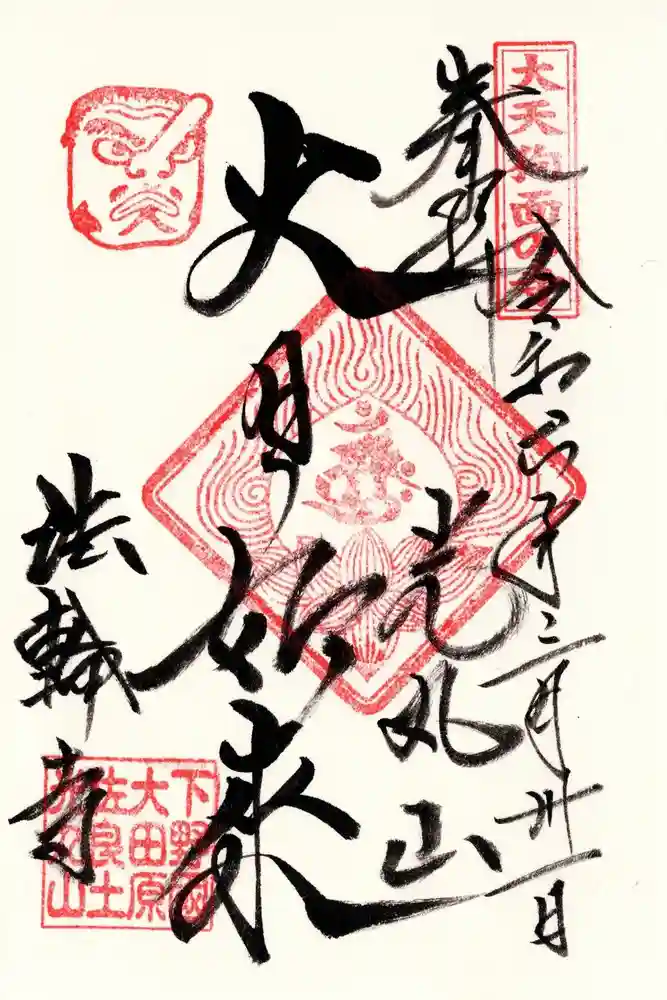 大天狗面の寺
奉拝
令和六年三月卅一日
光丸山
大日如来
法輪寺
下野国
大田原
佐良土
光丸山